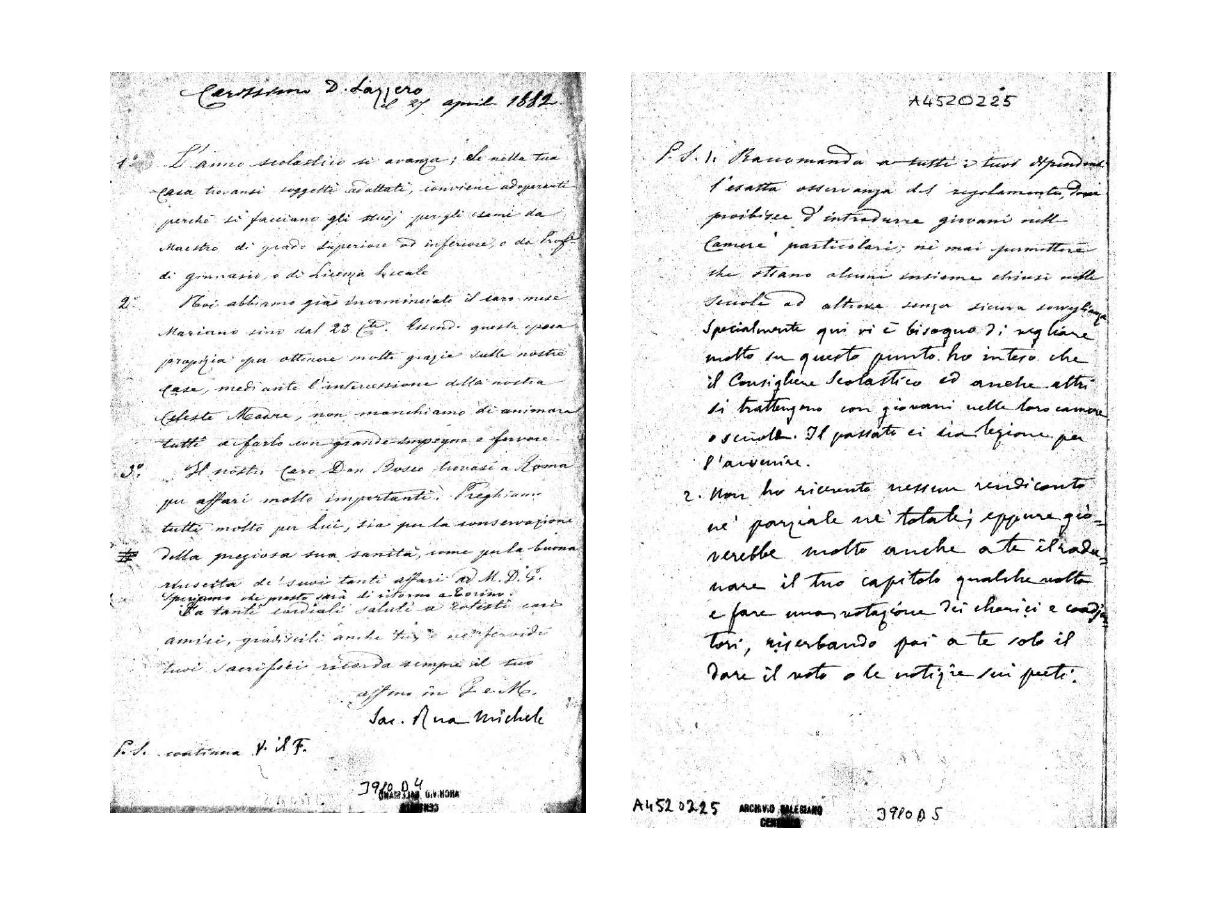 Carissimo D. Lazzero
il 27 aprile 1882
1° L'anno scolastico si avanza; se nella tua
casa trovansi soggetti adattati, conviene adoperarti
perchè si facciano gli studj per gli esami da
Maestro di grado superiore ed inferiore, o da Prof.
di ginnasio, o di Licenza Liceale
2° Noi abbiamo già incominciato il caro mese
Mariano sino dal 23 Cte. Essendo questa epoca
propizia per ottenere molte grazie sulle nostre
case, mediante l'intercessione della nostra
Celeste Madre, non manchiamo di animare
tutti a farlo con grande impegno e fervore.
3° Il nostro Caro Don Bosco trovasi a Roma
per affari molto importanti. Preghiamo
tutti molto per Lui, sia per la conservazione
della preziosa sua sanità, come per la buona
riuscita de' suoi tanti affari ad M. D. G.
Speriamo che presto sarà di ritorno a Torino.
Fa tanti cordiali saluti a cotesti cari
amici, gradiscili anche tu e ne' fervidi
tuoi sacrifici ricorda sempre il tuo
affmo in G. e M.
Sac. Rua Michele
P. S. continua V. il F.
3910 D 4
ARCHIVIO SALESIANO
CENTRALE
A4520225
P. S. 1. Raccomanda a tutti i tuoi dipendenti
l'esatta osservanza del regolamento, dove
proibisce d'introdurre giovani nelle
Camere particolari; nè mai permettere
che stiano alcuni insieme chiusi nelle
scuole od altrove senza sicura sorveglianza
Specialmente qui vi è bisogno di vegliare
molto su questo punto. ho inteso che
il Consigliere Scolastico ed anche altri
si trattengono con giovani nelle loro camere
o scuole. Il passato ci sia lezione per
l'avvenire.
2. Non ho ricevuto nessun rendiconto
nè parziale nè totale; eppure gio-
verebbe molto anche a te il radu-
nare il tuo capitolo qualche volta
e fare una votazione dei chierici e coadju-
tori, riserbando poi a te solo il
dare il voto o le notizie sui preti.
A4520225
ARCHIVIO SALESIANO
CENTRALE
3910 D 5